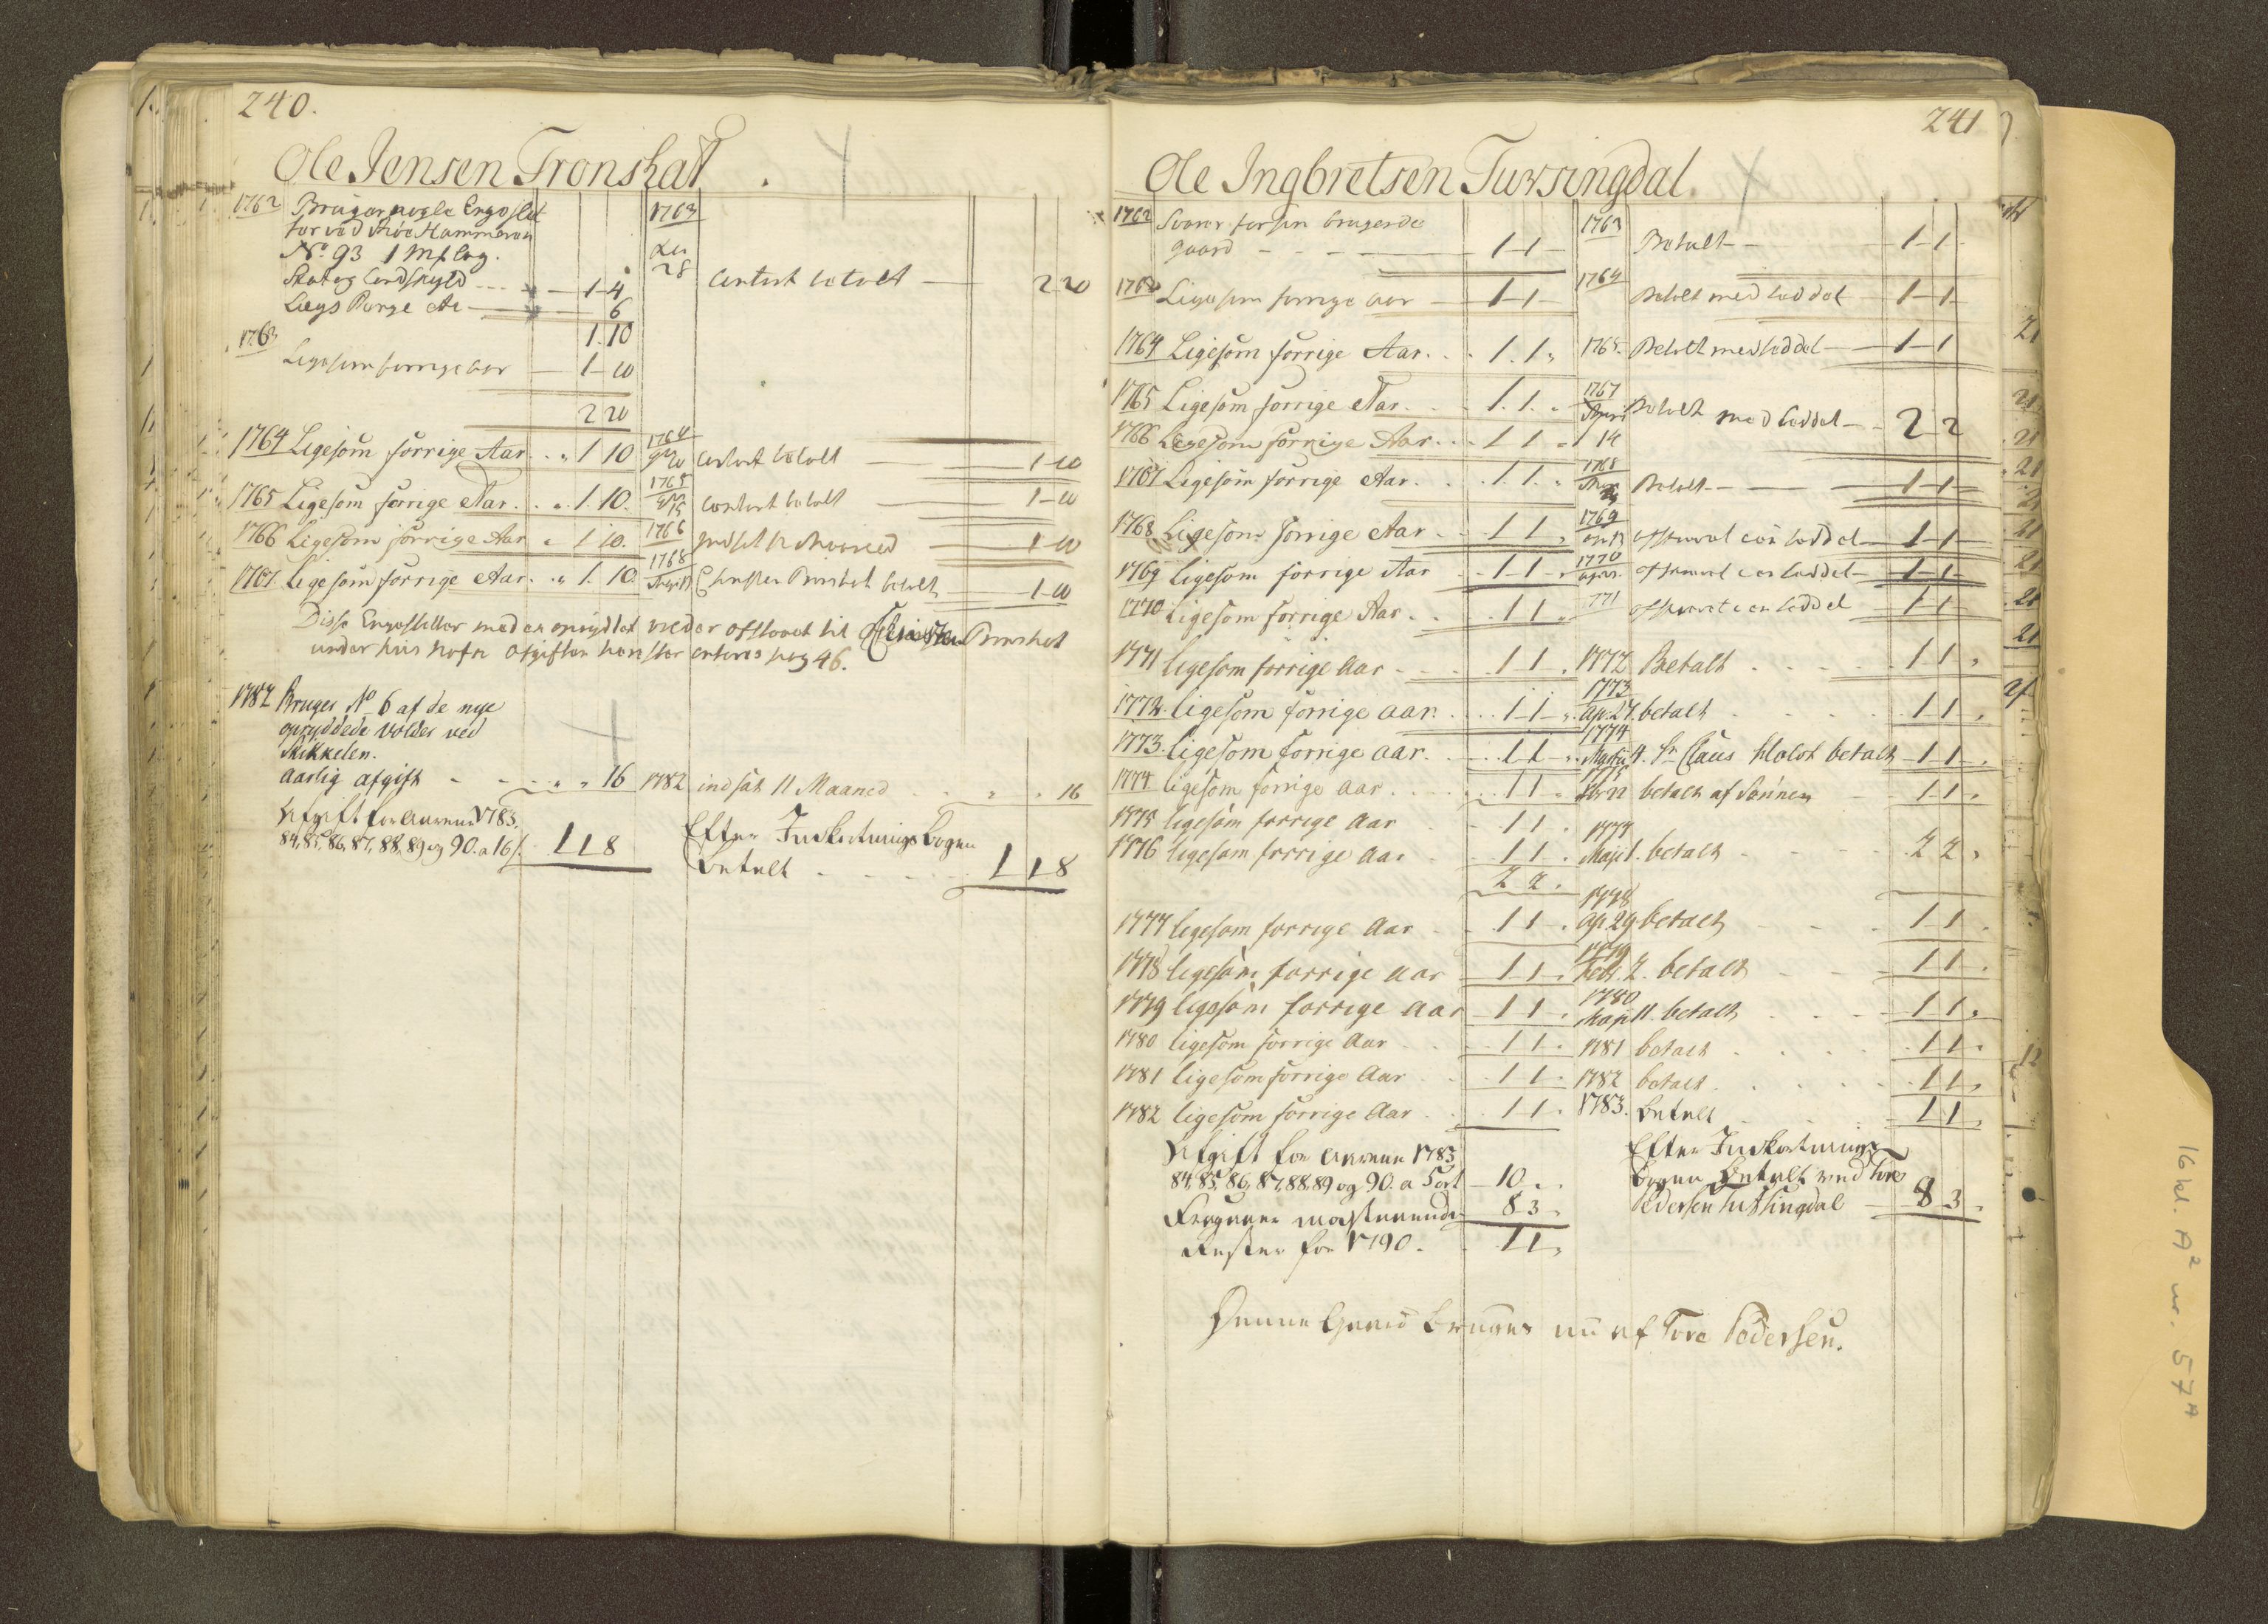 240.
Ole Jensen Tronshat.
1762 Bruger nogle Engeslet
ter ved Hammeren
No. 93 1 Mf Eng.
Skat og Landskyld --- 1-4
Lægs Penge &c - 6
1.10
1763
Ligesom forrige aar - 1-10
2 20
1764 Ligesom forrige Aar . . 1 10
1765 Ligesom forrige Aar . . 1.10.
1766 Ligesom forrige Aar 1 10.
1767 Ligesom forrige Aar . . 1.10.
1763
28 Contant betalt 2 20
1764
20 Contant betalt 1-10
1765
15 Contant betalt 1-10
1766 1-10
1768
betalt 1-10
Disse Engesletter med er afstaaet til
under hvis Nafn afgiften pag 46.
1782 Bruges No 6 af de nye
opryddede volder ved
Stikkelen.
aarlig afgift - - - " " 16
1782 indsat 11 Maaned . . " . 16
Afgift for Aarene 1783,
84, 85, 86, 87, 88, 89 og 90. a 16 s. 1 1 8
Efter Indkortnings Bogen
betalt . . . . 1 1 8
241
Ole Ingbretsen Tursingdal.
1762 Svarer for sin brugende
gaard - - - 1-1-
1763 Ligesom forrige aar - 1-1-
1764 Ligesom forrige Aar. . . 1. 1. "
1765 Ligesom forrige Aar. . . 1. 1. "
1766 Ligesom forrige Aar. . . 1 1 "
1767 Ligesom forrige Aar. . . 1. 1. "
1768. Ligesom forrige Aar. . . 1 1 "
1769 Ligesom forrige Aar . . 1-1 "
1770 Ligesom forrige Aar. . . 1 1 "
1771 ligesom forrige Aar . . . 1 1 .
1772. ligesom forrige aar. . . . 1-1 - ".
1773. ligesom forrige aar. . . . 1 1 - ".
1774 ligesom forrige aar. . . . 1 1 .
1775 ligesom forrige Aar . . 1 1 .
1776 ligesom forrige Aar . . 1 1 .
2 2 .
1777 ligesom forrige Aar . . 1 1 .
1778 ligesom forrige aar 1 1 .
1779 ligesom forrige Aar 1 1 .
1780 ligesom forrige Aar . . 1 1 .
1781 ligesom forrige Aar . . 1 1 .
1782 ligesom forrige Aar . . 1 1 .
Afgift for Aarene 1783
84, 85, 86, 87, 88, 89 og 90. a 5 ort 10 . .
8 3 .
Rester for 1790. . 1 1 ,
1763 Betalt - 1-1-
1764 Betalt med Seddel - 1-1-
1765. Betalt med Seddel - 1-1
1767
14 Betalt med Seddel - - 2 2
1768
Betalt - - 1-1-
1769
Seddel - 1-1-
1770
Seddel - 1-1-
771 Seddel 1 1
1772 Betalt . . . . 1 1 ,
1773
Ap. 27. betalt . . . . 1 1 ,
1774
Martii 4. Hr Claus betalt - 1 1 .
1775
22 betalt af Sønnen - 1 1 .
1777
Maji 1. betalt . . . . 2 2 ,
1778
Ap. 29 betalt . . . 1 1 .
1779
Febr. 2. betalt . . . 1 1 .
1780
Maji 11. betalt . . . 1 1 ,
1781 betalt . . . . 1 1 .
1782 betalt . . . . 1 1 ,
1783. betalt . . . 1 1 ,
Efter Indkortnings
bogen betalt ved Tore
Pedersen Tursingdal 8 3 .
Denne Gaard bruges nu af Tore Pedersen.
16 kl. A² nr. 57ᴬ